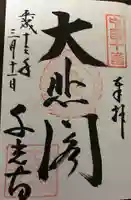 奉拝
大悲閣
平成十三年
三月十一日
千光寺